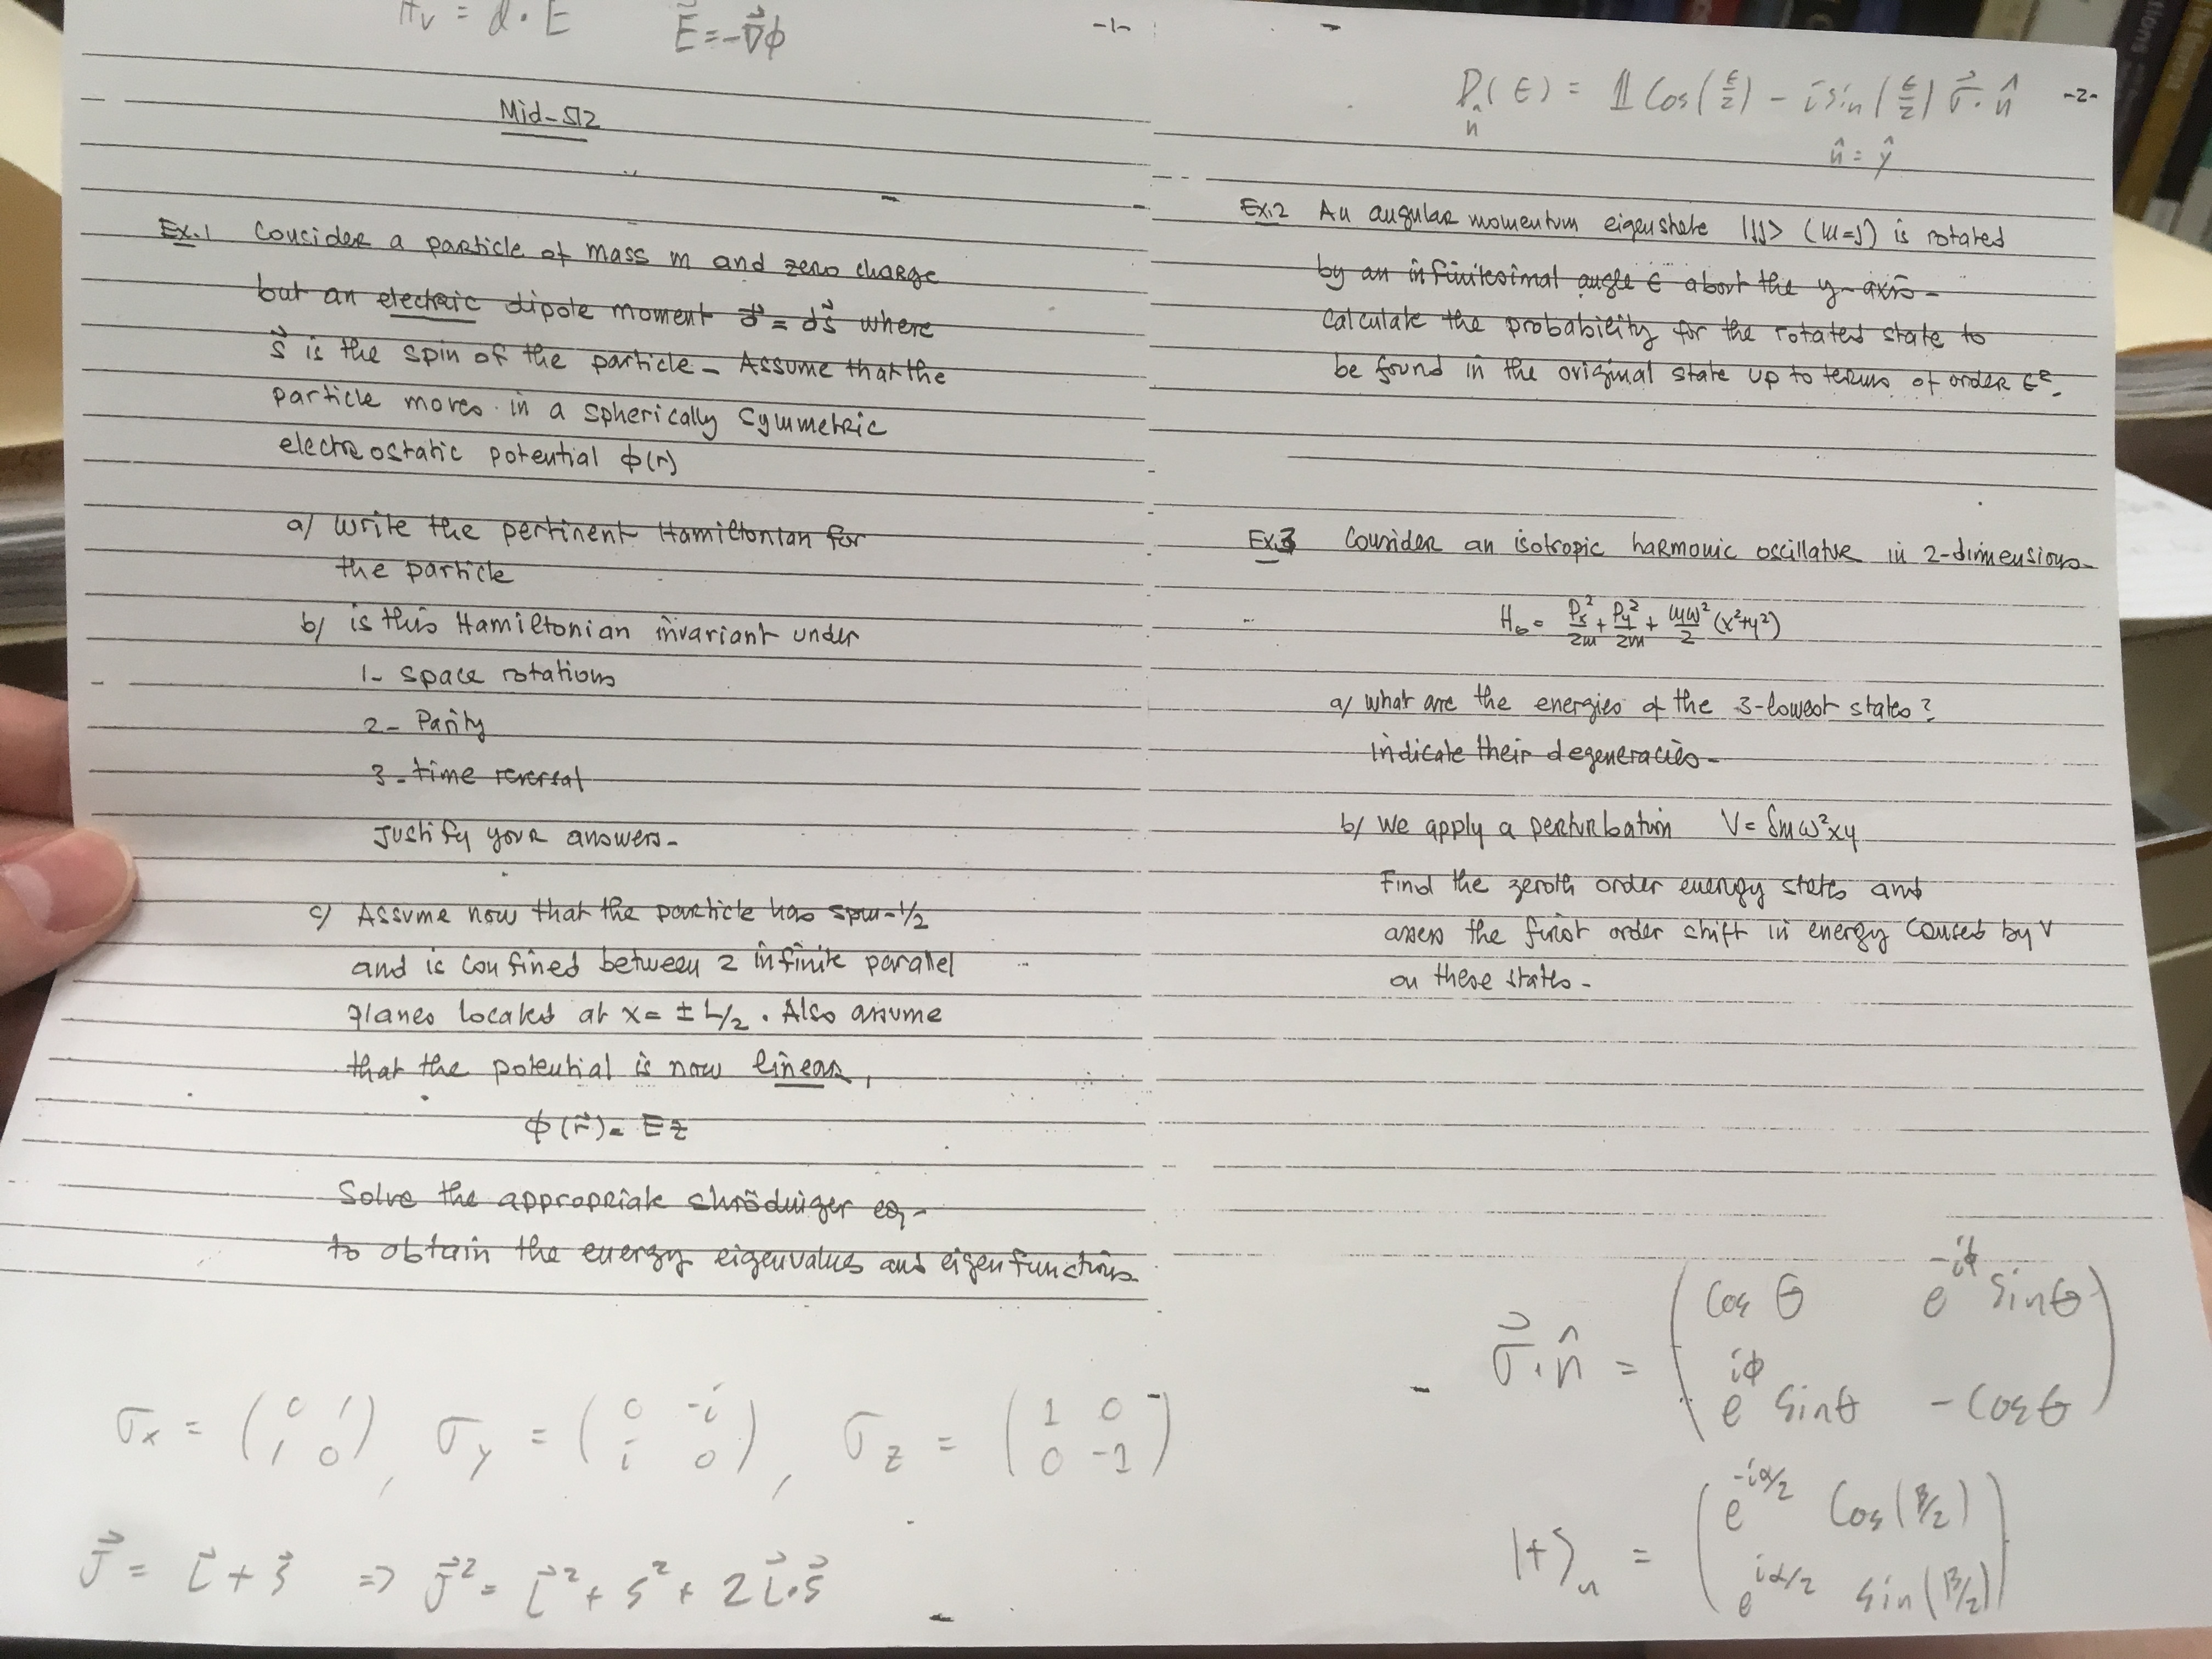 Hv = d · E    E⃗ = -∇⃗ϕ
-1-
Mid-512
Ex.1 Consider a particle of mass m and zero charge
but an electric dipole moment d⃗ = ds⃗ where
s⃗ is the spin of the particle - Assume that the
particle moves in a spherically symmetric
electrostatic potential ϕ(r)
a/ write the pertinent Hamiltonian for
the particle
b/ is this Hamiltonian invariant under
1- space rotations
2- Parity
3- time reversal
Justify your answers-
c/ Assume now that the particle has spin-1/2
and is confined between 2 infinite parallel
planes located at x= ± L/2 . Also assume
that the potential is now linear,
ϕ(r⃗) = Ez
Solve the appropriate shrödinger eq-
to obtain the energy eigenvalues and eigenfunctions
σx = (0 1; 1 0), σy = (0 -i; i 0), σz = (1 0; 0 -1)
J⃗ = L⃗ + s⃗ ⇒ J⃗² = L⃗² + s² + 2L⃗·s⃗
-2-
D_n̂(ε) = 𝟙 cos(ε/2) - i sin(ε/2) σ⃗ · n̂
n̂ = ŷ
Ex.2 An angular momentum eigenstate |JJ> (m=J) is rotated
by an infinitesimal angle ε about the y-axis-
calculate the probability for the rotated state to
be found in the original state up to terms of order ε².
Ex.3 Consider an isotropic harmonic oscillator in 2-dimensions-
H₀ = Px²/2m + Py²/2m + mω²/2 (x²+y²)
a/ what are the energies of the 3-lowest states?
indicate their degeneracies-
b/ we apply a perturbation V= δmω²xy
Find the zeroth order energy states and
assess the first order shift in energy caused by V
on these states-
σ⃗·n̂ = (cos θ e^{-iϕ} sinθ; e^{iϕ} sinθ -cosθ)
|+>n = (e^{-iα/2} cos(β/2); e^{iα/2} sin(β/2))